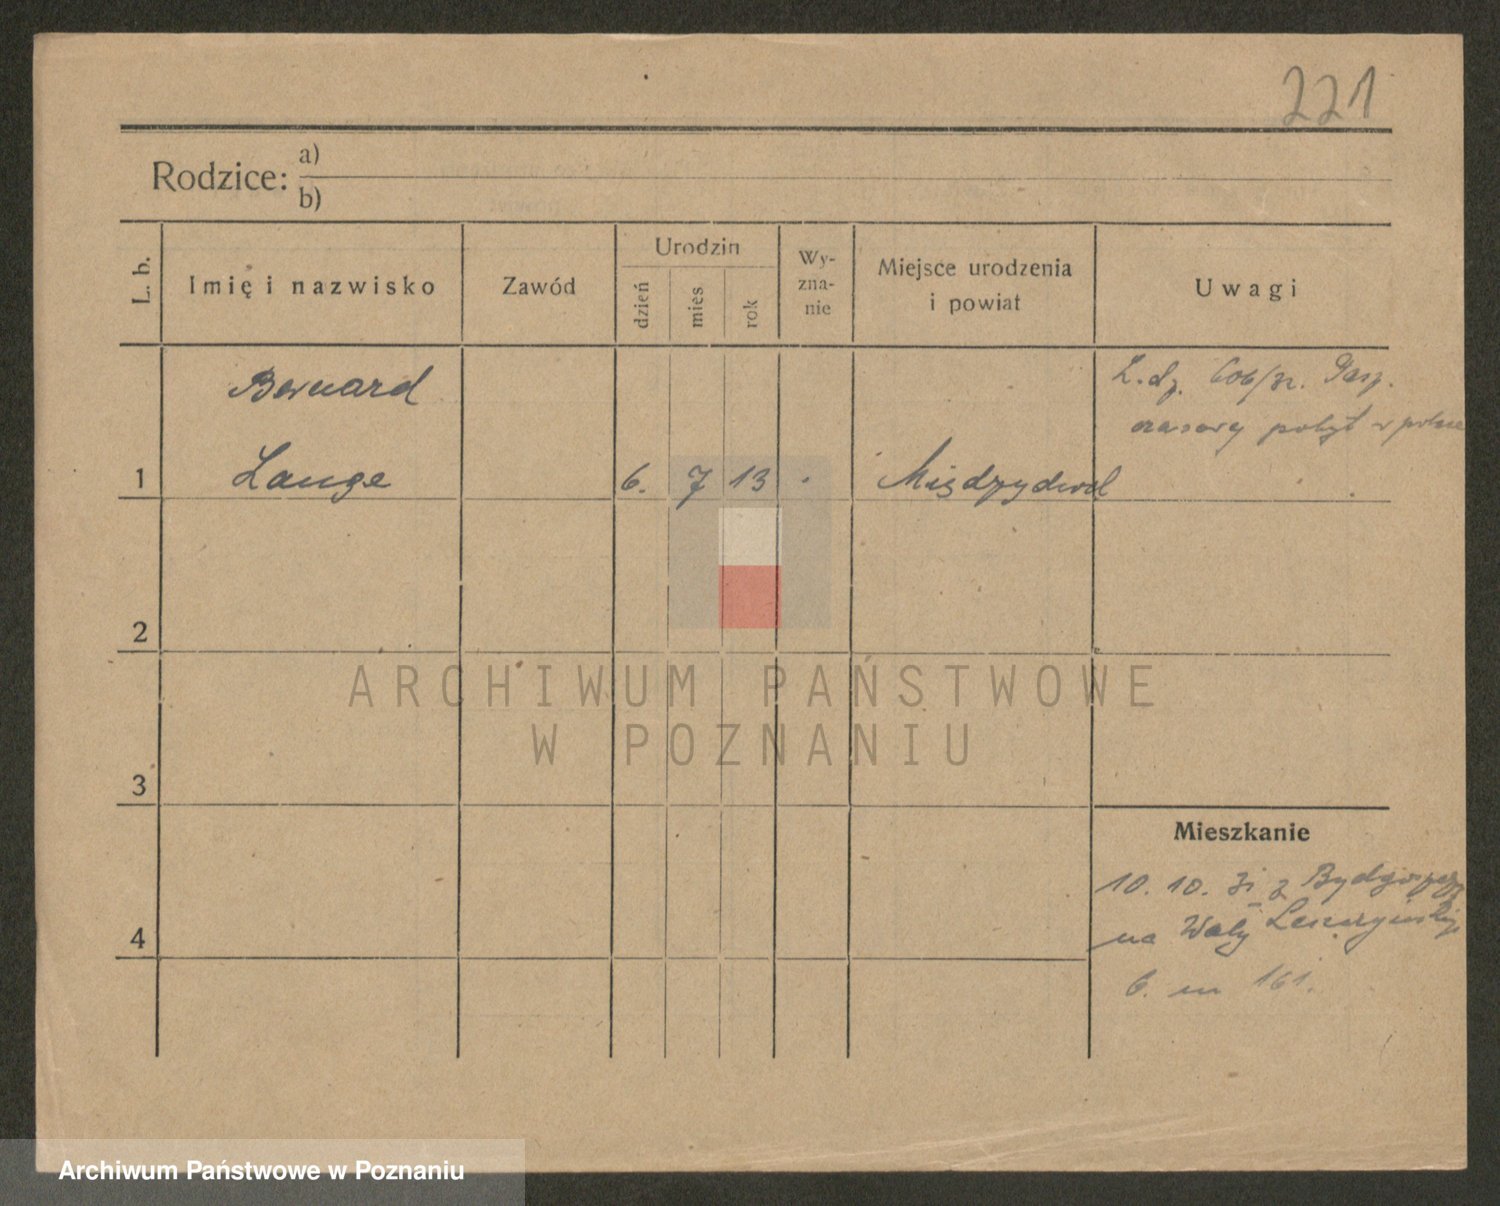 221
Rodzice: a)
b)
L. b.
Imię i nazwisko
Zawód
Urodzin
dzień
mies
rok
Wy-
zna-
nie
Miejsce urodzenia
i powiat
Uwagi
Bernard
Lange
1
6. 7 13
Międzydwol
L.dz. 606/32.
czasowy pobyt w
2
3
4
Mieszkanie
10. 10. 31 z
na Wały
6. m 161.
ARCHIWUM PAŃSTWOWE
W POZNANIU
Archiwum Państwowe w Poznaniu